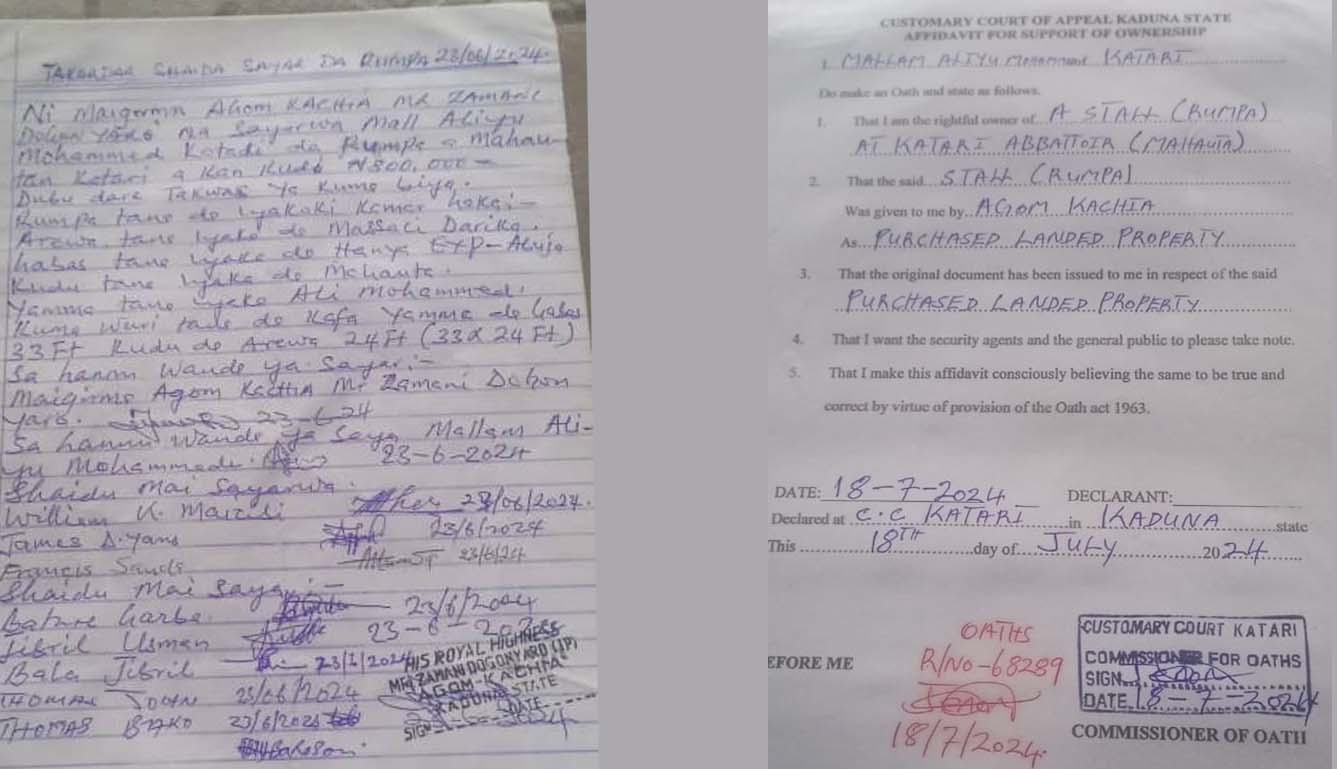 TAKARDAR SHAIDA SAYAR DA RUMPA 23/06/2024.
Ni Maigirma Agom KACHIA MR ZAMANI
Dogon YARO Na Sayarwa Mall Aliyu
Mohammed Katari da Rumpa a Mahau-
tan Katari a Kan Kudi ₦800,000 =
Dubu dari Takwas Ya Kuma biya.
Rumpa tana da Iyakoki Kamar haka:-
Arewa tana Iyaka da Massali Darika.
Gabas tana Iyaka da Hanya EXP-Abuja
Kudu tana Iyaka da Mahauta.
Yamma tana Iyaka Ali Mohammed.
Kuma Wuri tana da Kafa Yamma da Gabas
33 Ft Kudu da Arewa 24 Ft (33 x 24 Ft)
Sa hannun Wanda ya Sayar:-
Maigirma Agom KACHIA Mr Zamani Dogon
Yaro. 23-6-24
Sa hannun Wanda Ya Saya Mallam Ali-
yu Mohammed. 23-6-2024
Shaidu Mai Sayarwa.
William K. 23/06/2024.
James D. Yans 23/6/2024
Francis Sauds 23/6/24
Shaidu Mai Saya:-
Bature Garba. 23/6/2024
Jibril Usman 23-6-2024
Bala Jibril
THOMAS JOHN 23/06/2024
THOMAS BAKO 23/6/2024
HIS ROYAL HIGHNESS
MR ZAMANI DOGONYARO (JP)
AGOM-KACHIA
KADUNA STATE
SIGN DATE
CUSTOMARY COURT OF APPEAL KADUNA STATE
AFFIDAVIT FOR SUPPORT OF OWNERSHIP
I MALLAM ALIYU Mohammed KATARI
Do make an Oath and state as follows.
1. That I am the rightful owner of A STALL (RUMPA)
AT KATARI ABBATTOIR (MAHAUTA)
2. That the said STALL (RUMPA)
Was given to me by AGOM KACHIA
As PURCHASED LANDED PROPERTY
3. That the original document has been issued to me in respect of the said
PURCHASED LANDED PROPERTY
4. That I want the security agents and the general public to please take note.
5. That I make this affidavit consciously believing the same to be true and
correct by virtue of provision of the Oath act 1963.
DATE: 18-7-2024 DECLARANT:
Declared at C.C KATARI in KADUNA state
This 18TH day of JULY 2024
EFORE ME
OATHS
R/No-68289
18/7/2024.
CUSTOMARY COURT KATARI
COMMISSIONER FOR OATHS
SIGN
DATE 18-7-2024
COMMISSIONER OF OATH